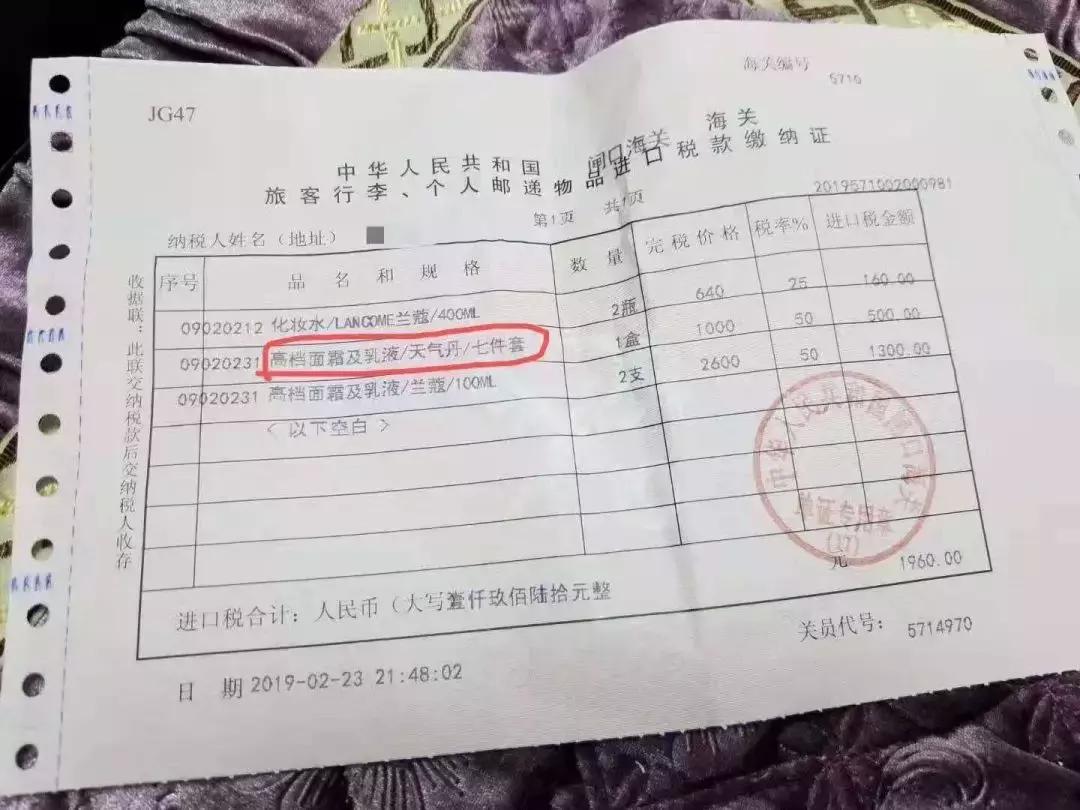 海关编号
5710
JG47
中华人民共和国 闸口海关 海关
旅客行李、个人邮递物品进口税款缴纳证
2019571002000981
第1页 共1页
纳税人姓名(地址)
序号 品名和规格 数量 完税价格 税率% 进口税金额
09020212 化妆水/LANCOME兰蔻/400ML 2瓶 640 25 160.00
09020231 高档面霜及乳液/天气丹/七件套 1盒 1000 50 500.00
09020231 高档面霜及乳液/兰蔻/100ML 2支 2600 50 1300.00
< 以下空白 >
进口税合计:人民币(大写壹仟玖佰陆拾元整 元 1960.00
日期 2019-02-23 21:48:02
关员代号: 5714970
收据联:此联交纳税款后交纳税人收存
中华人民共和国闸口海关
单证专用章
(17)